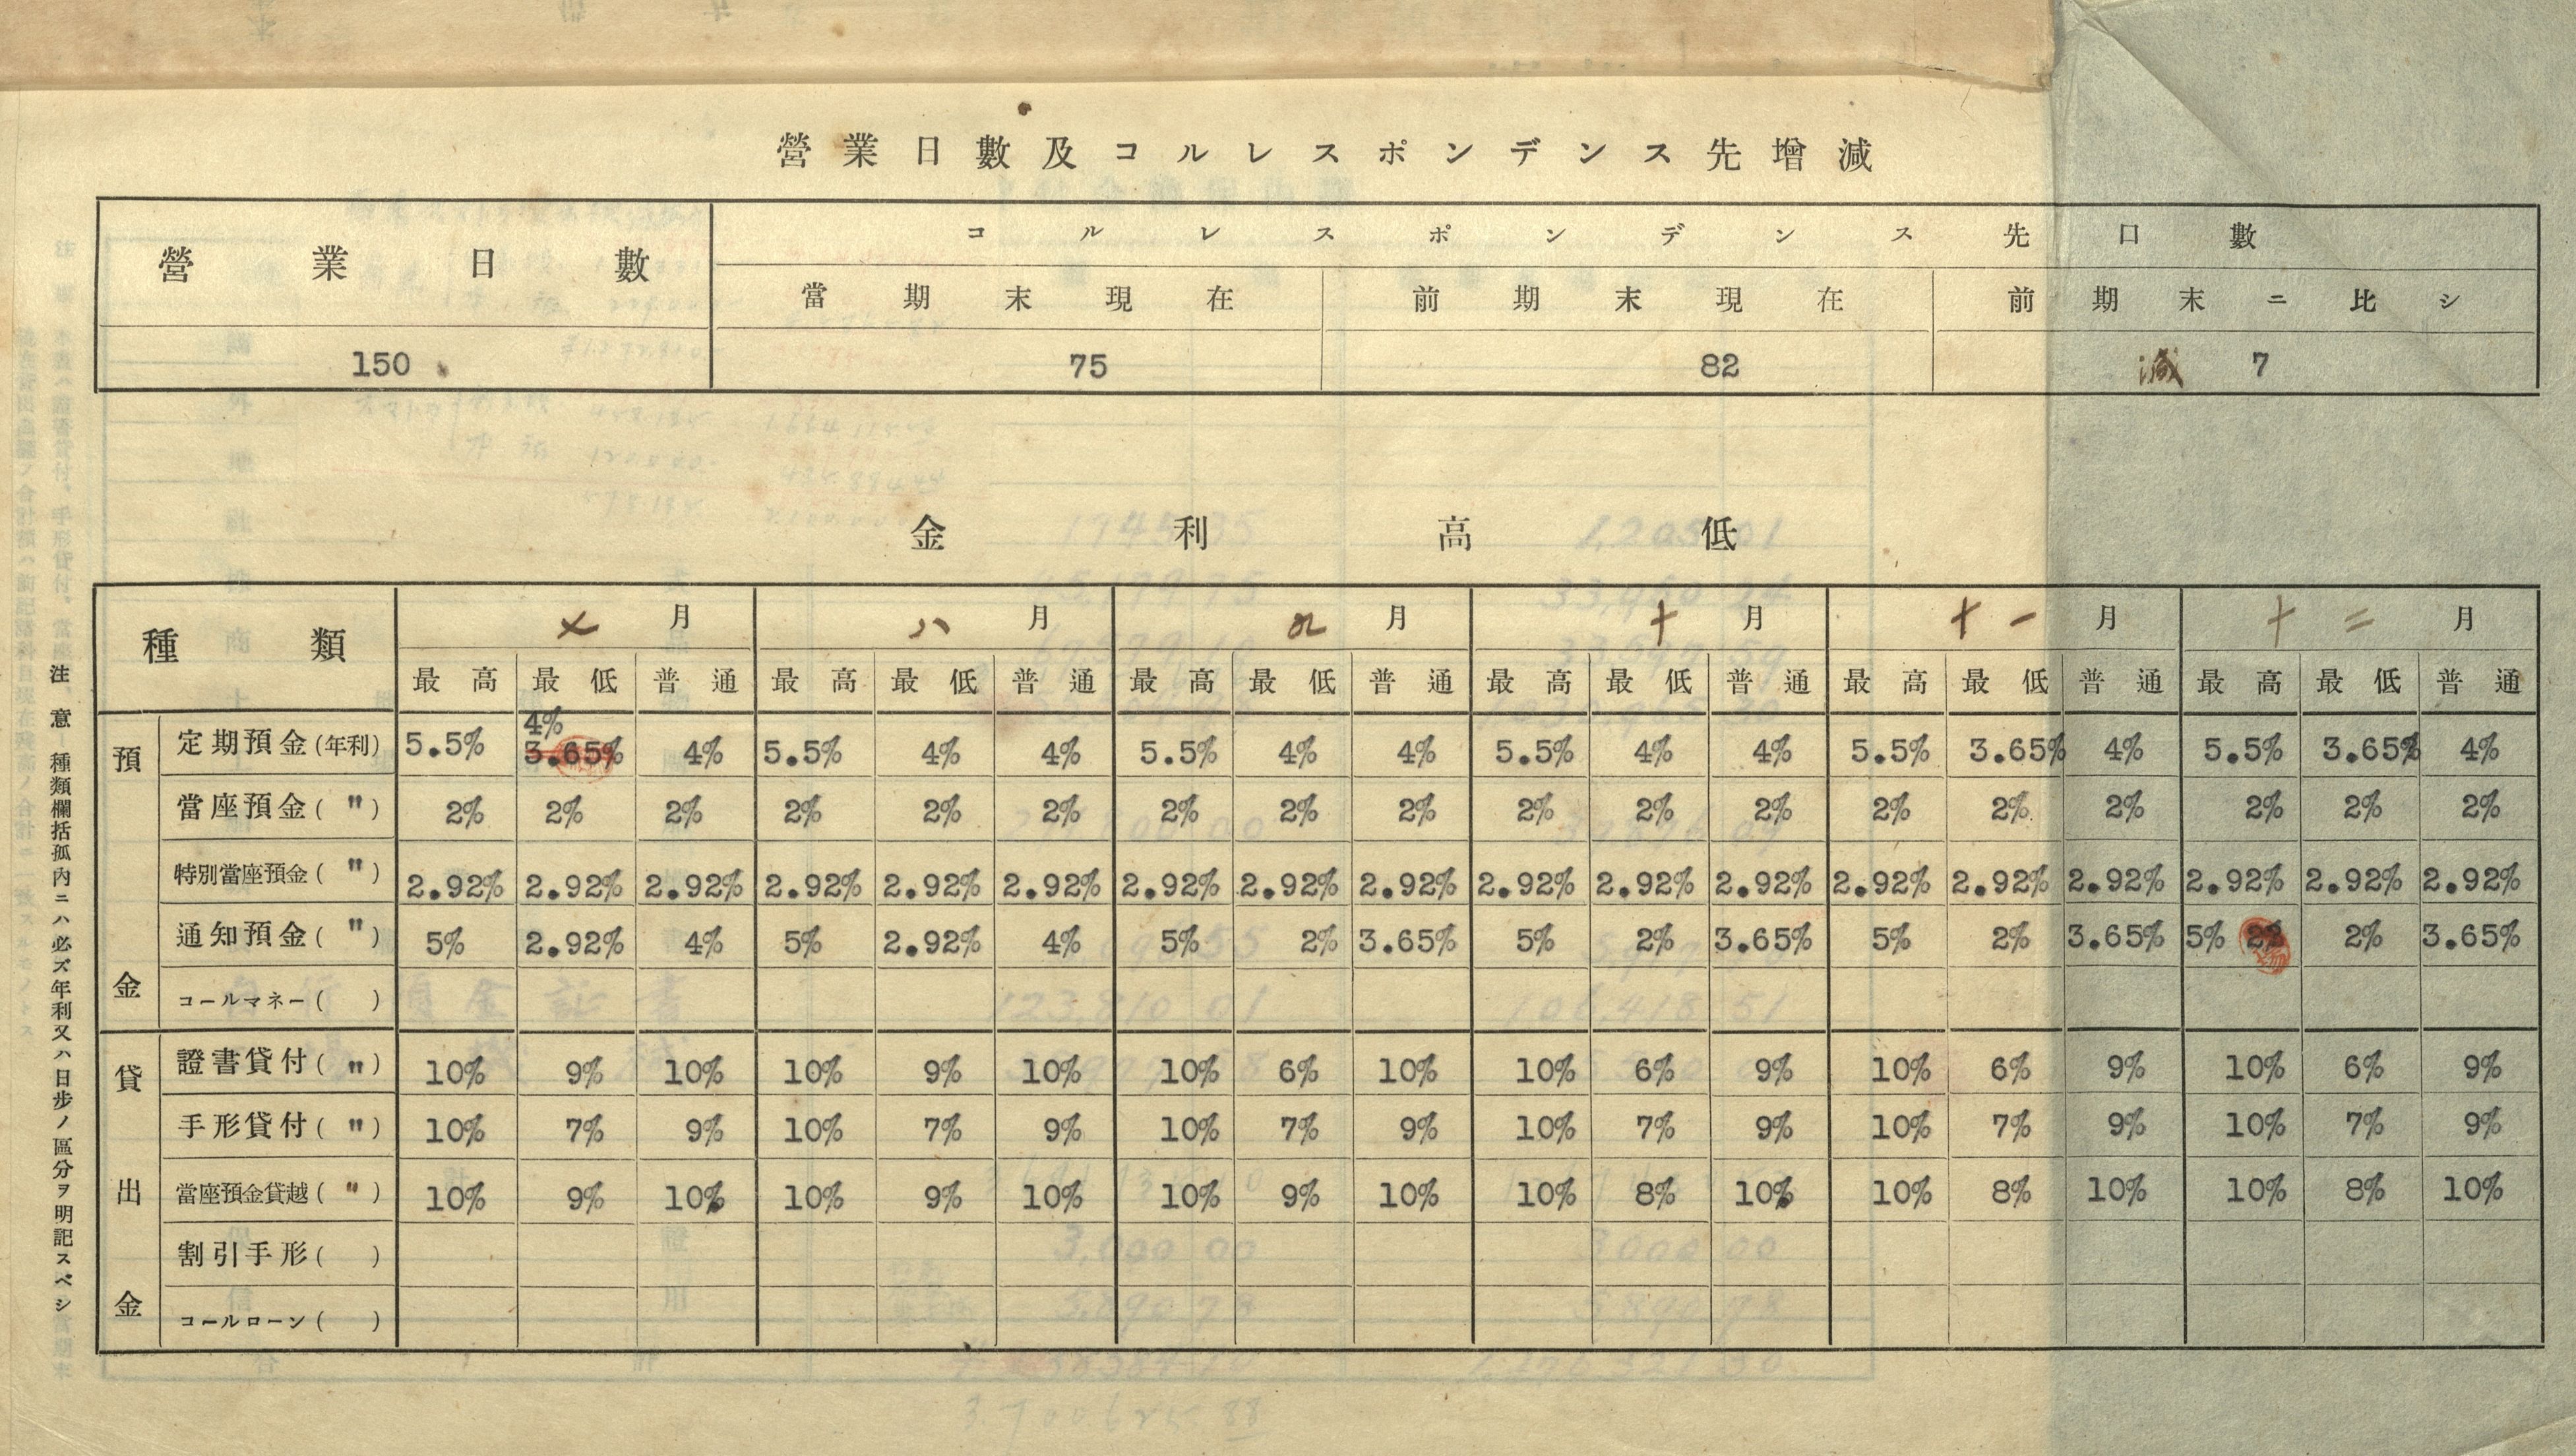 營業日數及コルレスポンデンス先增減
營業日數 コルレスポンデンス先口數
當期末現在 前期末現在 前期末ニ比シ
150 75 82 減 7
金利高低
種類 七月 八月 九月 十月 十一月 十二月
最高 最低 普通 最高 最低 普通 最高 最低 普通 最高 最低 普通 最高 最低 普通 最高 最低 普通
預金
定期預金(年利) 5.5% 4% 3.65% 4% 5.5% 4% 4% 5.5% 4% 4% 5.5% 4% 4% 5.5% 3.65% 4% 5.5% 3.65% 4%
當座預金( " ) 2% 2% 2% 2% 2% 2% 2% 2% 2% 2% 2% 2% 2% 2% 2% 2% 2% 2%
特別當座預金( " ) 2.92% 2.92% 2.92% 2.92% 2.92% 2.92% 2.92% 2.92% 2.92% 2.92% 2.92% 2.92% 2.92% 2.92% 2.92% 2.92% 2.92% 2.92%
通知預金( " ) 5% 2.92% 4% 5% 2.92% 4% 5% 2% 3.65% 5% 2% 3.65% 5% 2% 3.65% 5% 2% 3.65%
コールマネー( )
貸出金
證書貸付( " ) 10% 9% 10% 10% 9% 10% 10% 6% 10% 10% 6% 9% 10% 6% 9% 10% 6% 9%
手形貸付( " ) 10% 7% 9% 10% 7% 9% 10% 7% 9% 10% 7% 9% 10% 7% 9% 10% 7% 9%
當座預金貸越( " ) 10% 9% 10% 10% 9% 10% 10% 9% 10% 10% 8% 10% 10% 8% 10% 10% 8% 10%
割引手形( )
コールローン( )
注意 種類欄括孤內ニハ必ズ年利又ハ日步ノ區分ヲ明記スベシ